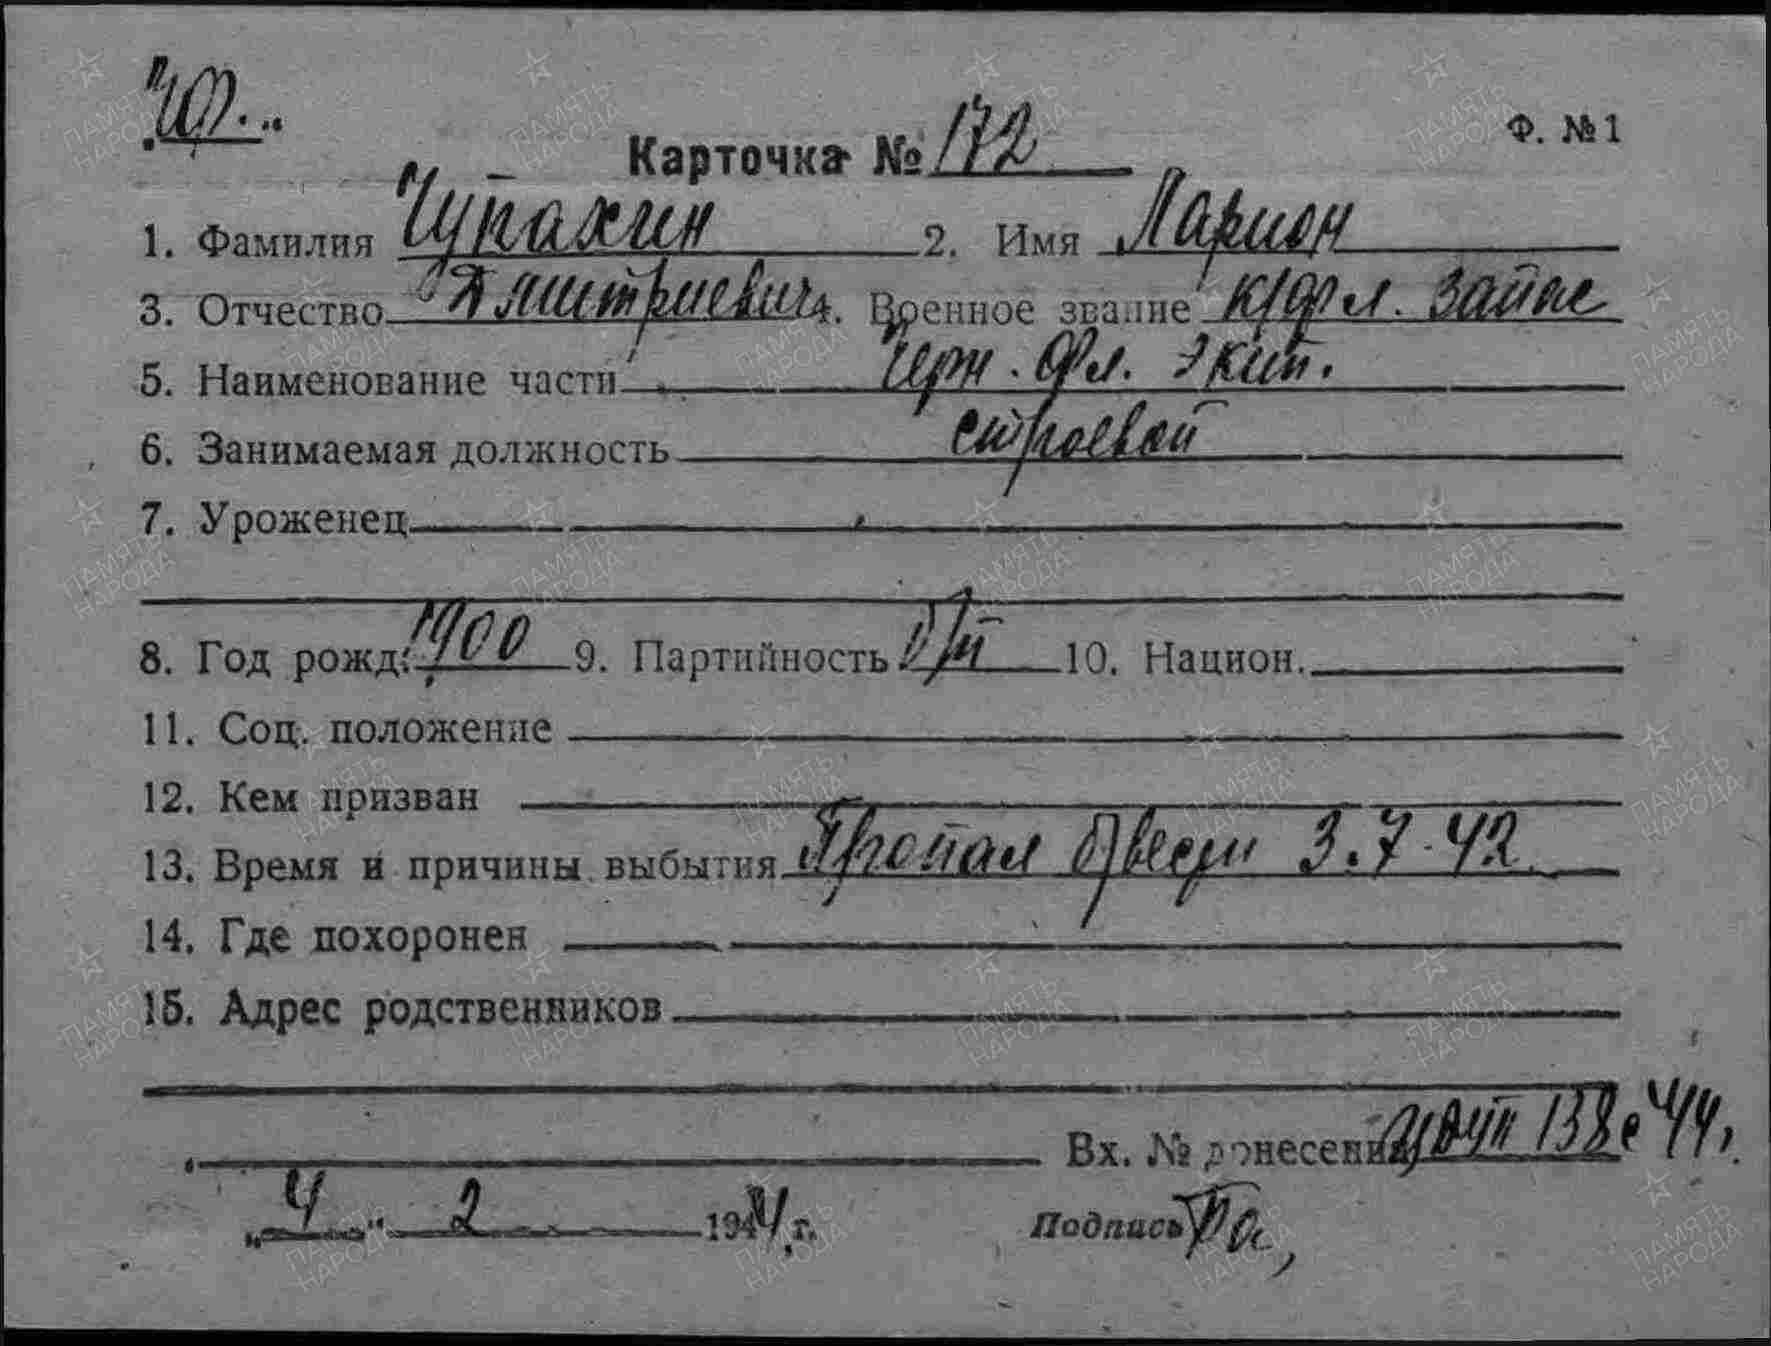 Карточка № 172
Ф. №1
1. Фамилия Чупахин 2. Имя Ларион
3. Отчество Дмитриевич 4. Военное звание к/фл. запас
5. Наименование части Черн. Фл. Экип.
6. Занимаемая должность строевой
7. Уроженец
8. Год рожд. 1900 9. Партийность б/п 10. Национ.
11. Соц. положение
12. Кем призван
13. Время и причины выбытия Пропал 3.7-42
14. Где похоронен
15. Адрес родственников
Вх. № донесения 138с 44
„4" 2 1944 г. Подпись
ПАМЯТЬ НАРОДА